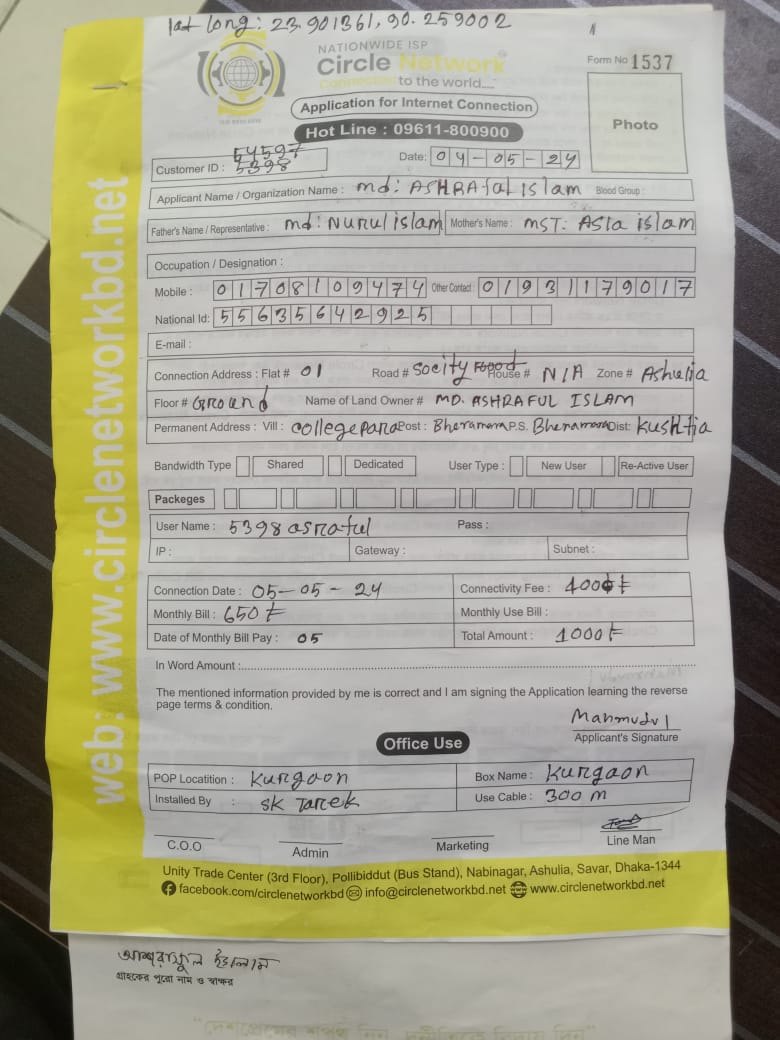 lat long: 23.901361, 90.259002
NATIONWIDE ISP
Circle Network
Connected to the world....
Form No 1537
Application for Internet Connection
Hot Line : 09611-800900
Photo
54597
Customer ID : 5398
Date: 04-05-24
Applicant Name / Organization Name : md: ASHRAfal islam Blood Group :
Father's Name / Representative : md: Nurul islam Mother's Name : MST: Asia islam
Occupation / Designation :
Mobile : 01708109474 Other Contact : 01931179017
National Id: 5563564 2925
E-mail :
Connection Address : Flat # 01 Road # Socity House # N/A Zone # Ashulia
Floor # Ground Name of Land Owner # MD. ASHRAFUL ISLAM
Permanent Address : Vill : collegepara Post : Bheramara P.S. Bheramara Dist: Kushtia
Bandwidth Type Shared Dedicated User Type : New User Re-Active User
Packeges
User Name : 5398 asraful Pass :
IP : Gateway : Subnet :
Connection Date : 05-05-24 Connectivity Fee : 1000৳
Monthly Bill : 650৳ Monthly Use Bill :
Date of Monthly Bill Pay : 05 Total Amount : 1000৳
In Word Amount :
The mentioned information provided by me is correct and I am signing the Application learning the reverse
page terms & condition.
Mahmudul
Applicant's Signature
Office Use
POP Locatition : Kurgaon Box Name : Kurgaon
Installed By : SK Tarek Use Cable : 300 m
C.O.O Admin Marketing Line Man
Unity Trade Center (3rd Floor), Pollibiddut (Bus Stand), Nabinagar, Ashulia, Savar, Dhaka-1344
facebook.com/circlenetworkbd info@circlenetworkbd.net www.circlenetworkbd.net
web: www.circlenetworkbd.net
আশরাফুল ইসলাম
গ্রাহকের পুরো নাম ও স্বাক্ষর